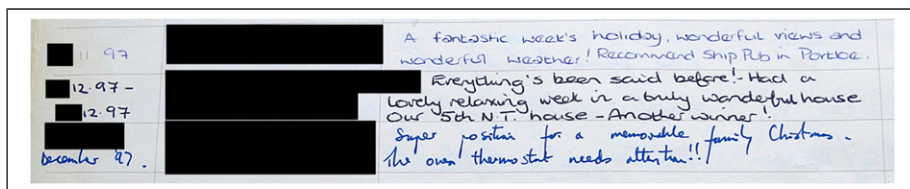 11 97 A fantastic week's holiday, wonderful views and
wonderful weather! Recommend Ship Pub in Portloe.
12.97 - Everything's been said before!- Had a
12.97 lovely relaxing week in a truly wonderful house
Our 5th N.T. house - Another winner!
Super position for a memorable family Christmas.
December '97. The oven thermostat needs attention!!